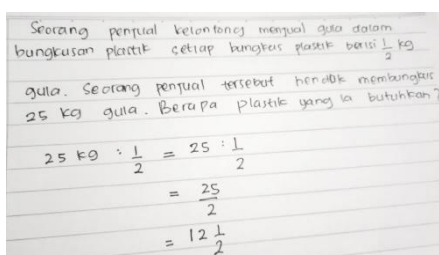 Seorang penjual kelontong menjual gula dalam
bungkusan plastik setiap bungkus plastik berisi 1/2 kg
gula. Seorang penjual tersebut hendak membungkus
25 kg gula. Berapa plastik yang ia butuhkan?
25 kg : 1/2 = 25 : 1/2
= 25/2
= 12 1/2